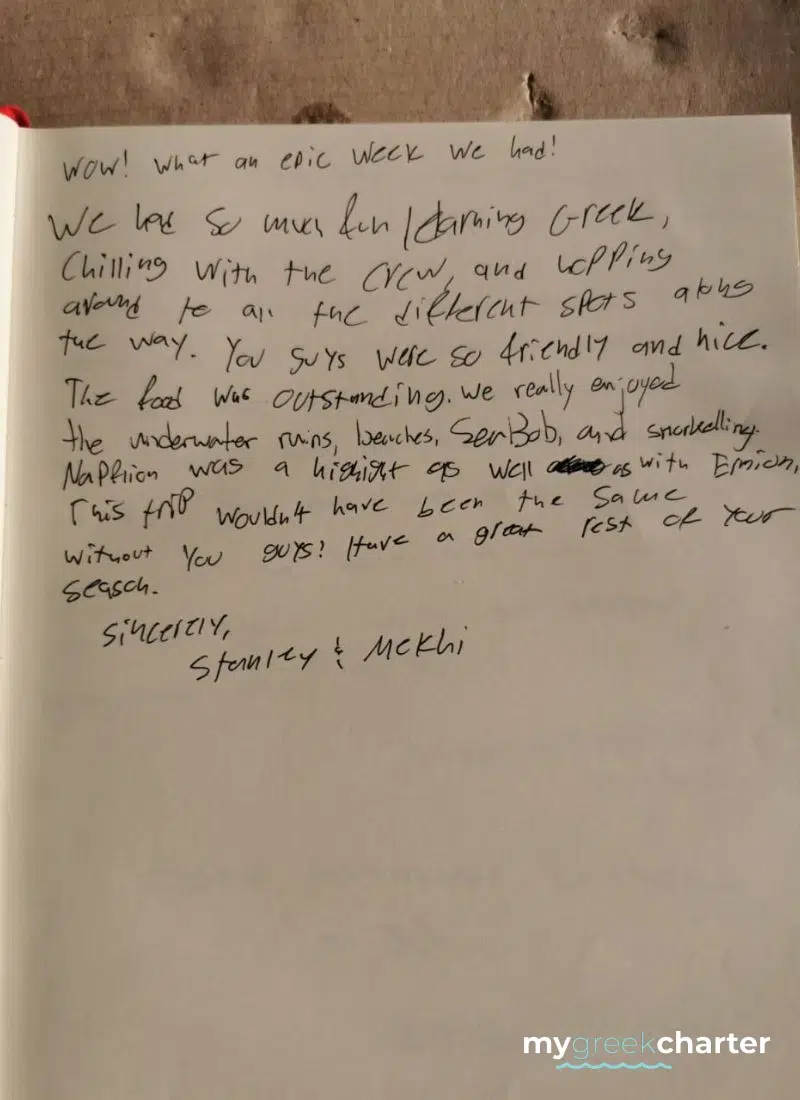 WOW! What an epic week we had!
We had so much fun learning Greek,
Chilling with the crew, and hopping
around to all the different spots along
the way. You guys were so friendly and nice.
The food was outstanding. We really enjoyed
the underwater ruins, beaches, SeaBob, and snorkelling.
Napflion was a highlight as well as with Ermion,
This trip wouldn't have been the same
without you guys! Have a great rest of your
season.
Sincerely,
Stanley & Mekhi
mygreekcharter